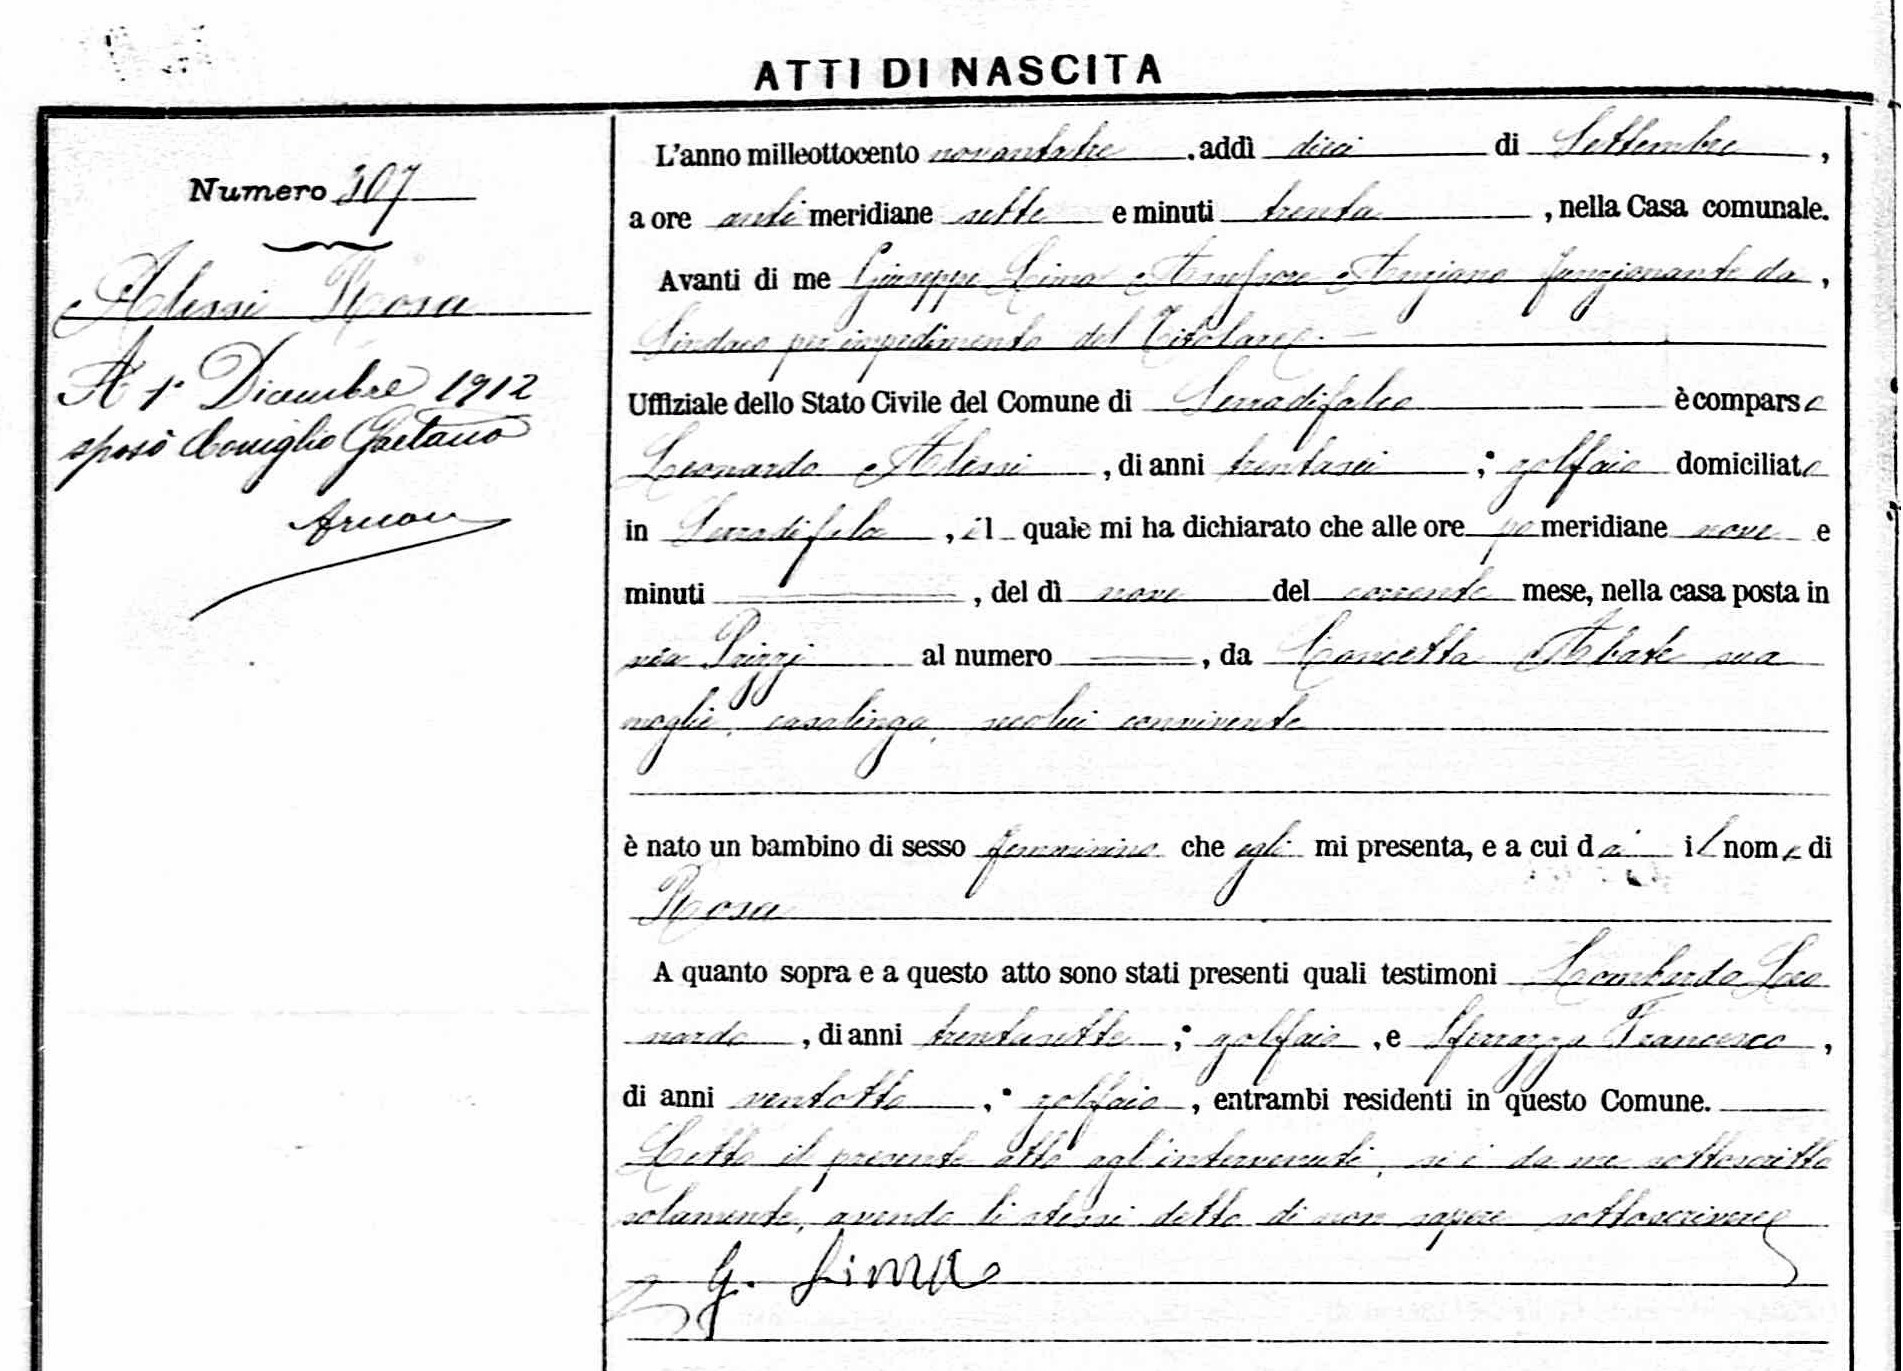 ATTI DI NASCITA
Numero 307
Alessi Rosa
A 1° Dicembre 1912
sposò Coniglio Gaetano
L'anno milleottocento novantatre, addì dieci di Settembre,
a ore anti meridiane sette e minuti trenta, nella Casa comunale.
Avanti di me Giuseppe Lima Assessore Anziano funzionante da,
Sindaco per impedimento del Titolare.
Uffiziale dello Stato Civile del Comune di Serradifalco è comparso
Leonardo Alessi, di anni trentasei, golfaio domiciliato
in Serradifalco, il quale mi ha dichiarato che alle ore po meridiane nove e
minuti , del dì nove del corrente mese, nella casa posta in
via Prizzi al numero , da Concetta Abate sua
moglie, casalinga, seco lui convivente
è nato un bambino di sesso femminino che egli mi presenta, e a cui dà il nome di
Rosa
A quanto sopra e a questo atto sono stati presenti quali testimoni Lombardo Leo
nardo, di anni trentasette, golfaio, e Sferrazza Francesco,
di anni ventotto, golfaio, entrambi residenti in questo Comune.
Letto il presente atto agl'intervenuti, si è da me sottoscritto
solamente, avendo li stessi detto di non sapere sottoscrivere
G. Lima